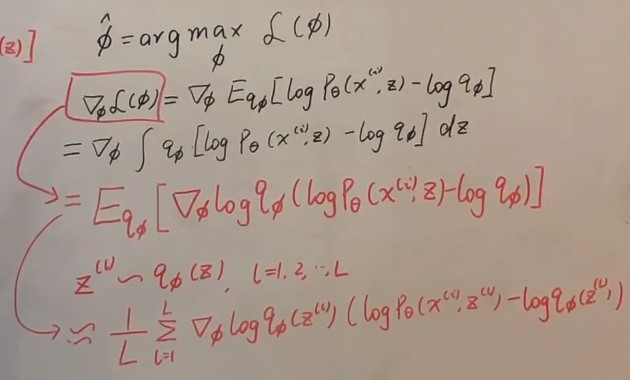 (z)]
φ̂ = arg max_φ ℒ(φ)
∇_φ ℒ(φ) = ∇_φ E_{q_φ}[log P_θ(x^{(i)}, z) - log q_φ]
= ∇_φ ∫ q_φ [log P_θ(x^{(i)}, z) - log q_φ] dz
= E_{q_φ}[∇_φ log q_φ (log P_θ(x^{(i)}, z) - log q_φ)]
z^{(l)} ∼ q_φ(z), l=1, 2, ⋯, L
≈ 1/L ∑_{l=1}^{L} ∇_φ log q_φ(z^{(l)}) (log P_θ(x^{(i)}, z^{(l)}) - log q_φ(z^{(l)}))